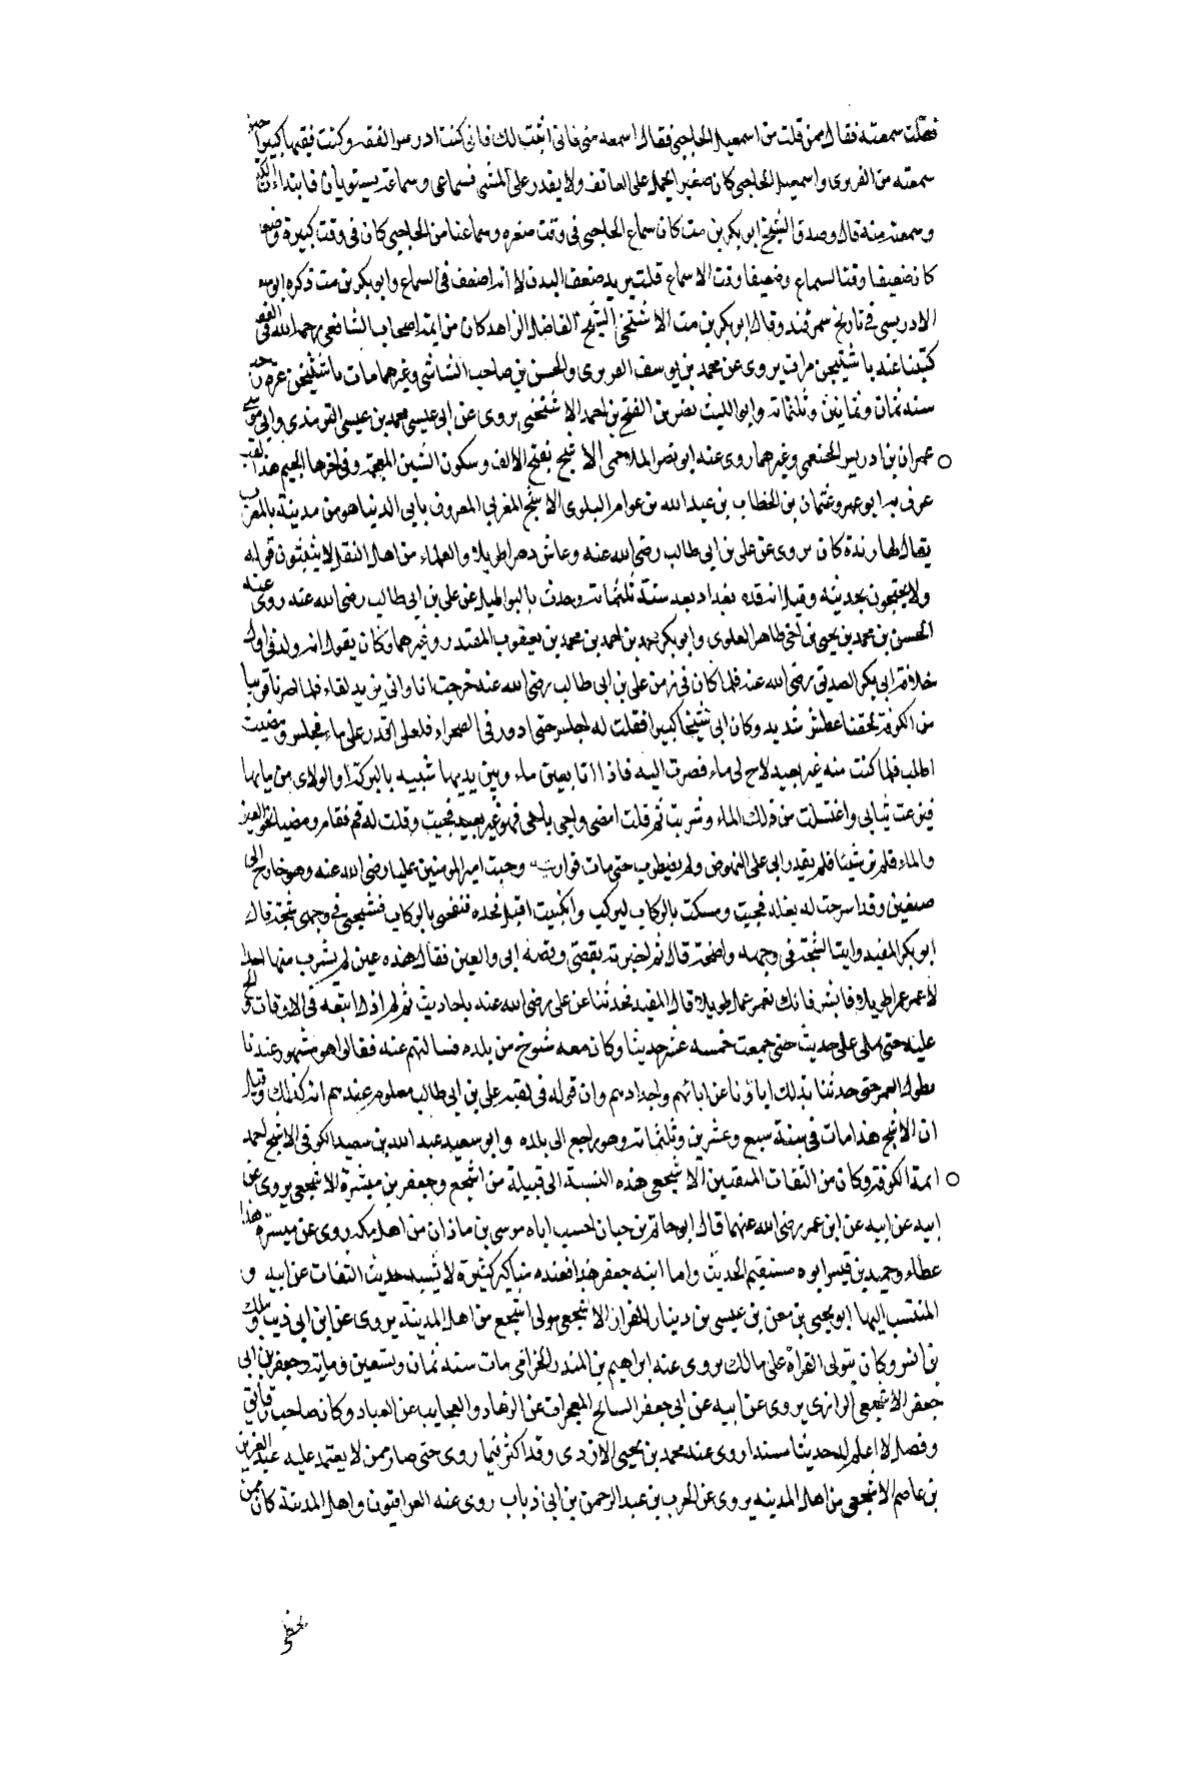 فقلت سمعته فقال ممن قلت من اسمعيل الحاجبى فقال اسمعه منى فانى اثبت لك فانى كنت ادرس الفقه وكنت فقيها كبيرا حين
سمعته من الفربرى واسمعيل الحاجبى كان صغيرا يحمل على العاتق ولا يقدر على المشى فسماعى وسماعه يستويان فابتدات
وسمعته منه قال وصدق الشيخ ابو بكر بن مت كان سماع الحاجبى فى وقت صغره وسماعنا من الحاجبى كان فى وقت كبيرة
كان ضعيفا وقت السماع وضعيفا وقت الاسماع قلت يريد ضعف البدن لا انه اضعف فى السماع وابو بكر بن مت ذكره ابو سعد
الادريسى فى تاريخ سمرقند وقال ابو بكر بن مت الاشتيخنى الشيخ الفاضل الزاهد كان من ايمة اصحاب الشافعى رحمه الله فى الفقه
كتبنا عنه باشتيخن مرات يروى عن محمد بن يوسف الفربرى والحسن بن صاحب الشاشى وغيرهما مات باشتيخن غرة
سنة ثمان وثمانين وثلثماته وابو الليث نصر بن الفتح بن احمد الاشتيخنى يروى عن ابى عيسى محمد بن عيسى الترمذى وابى موسى
عمران بن ادريس الختعمى وغيرهما روى عنه ابو نصر الملاحمى الاشج بفتح الالف وسكون الشين المعجمة وفى اخرها الجيم هذا لقب
عرف به ابو عمرو عثمان بن الخطاب بن عبد الله بن عوام البلوى الاشج المغربى المعروف بابى الدنيا هو من مدينة بالمغرب
يقال لها رندة كان يروى عن على بن ابى طالب رضى الله عنه وعاش دهرا طويلا والعلماء من اهل النقل لا يثبتون قوله
ولا يحتجون بحديثه وقيل انه قدم بغداد بعد سنة ثلثماته وحدث بالبواطيل عن على بن ابى طالب رضى الله عنه روى عنه
الحسن بن محمد بن يحيى بن اخى طاهر العلوى وابو بكر محمد بن احمد بن محمد بن يعقوب المفيد وغيرهما وكان يقول انه ولد فى اول
خلافة ابى بكر الصديق رضى الله عنه فلما كان فى زمن على بن ابى طالب رضى الله عنه خرجت انا وابى نريد لقاءه فلما صرنا قريبا
من الكوفة لحقنا عطش شديد وكان ابى شيخا كبيرا فقلت له اجلس حتى ادور فى الصحراء فلعلى اقدر على ماء فجلس ومضيت
اطلب فلما كنت منه غير بعيد لاح لى ماء فصرت اليه فاذا انا بعين ماء وبين يديها شبيه بالبركة او الوادى من مايها
فنزعت ثيابى واغتسلت من ذلك الماء وشربت ثم قلت امضى واجى بابى فهو غير بعيد فجيت وقلت له قم فقام ومضينا نحو العين
والماء فلم نر شيئا فلم يقدر ابى على النهوض ولم يضطرب حتى مات فواريته وجيت امير المومنين عليا رضى الله عنه وهو خارج الى
صفين وقد اسرجت له بغله فجيت ومسكت بالركاب ليركب وانكبيت اقبل فخذه فنفحنى بالركاب فشجنى فى وجهى شجة قال
ابو بكر المفيد ورايت الشجة فى وجهه واضحة قال ثم اخبرته بقصتى وقصة ابى والعين فقال هذه عين لم يشرب منها احد
الا عمر عمرا طويلا فابشر فانك تعمر عمرا طويلا قال المفيد فحدثنا عن على رضى الله عنه باحاديث ثم لم ازل اتبعه فى الاوقات والح
عليه حتى يملى على حديث حتى جمعت خمسه عشر حديثا وكان معه شيوخ من بلده فسالتهم عنه فقالوا هو مشهور عندنا
بطول العمر حتى حدثنا بذلك اباؤنا عن ابائهم واجدادهم وان قوله فى لقيه على بن ابى طالب معلوم عندهم انه كذلك وقيل
ان الاشج هذا مات فى سنة سبع وعشرين وثلثماته وهو راجع الى بلده وابو سعيد عبد الله بن سعيد الكوفى الاشج احد
ايمة الكوفة وكان من الثقات المتقنين الاشجعى هذه النسبة الى قبيلة من اشجع وجعفر بن ميسرة الاشجعى يروى عن
ابيه عن ابيه عن ابن عمر رضى الله عنهما قال ابو حاتم بن حبان احسب اباه موسى بن ماذان من اهل مكه روى عن ميسرة هذا
عطاء وحميد بن قيس ابوه مستقيم الحديث واما ابنه جعفر هذا فعنده مناكير كثيرة لا تشبه حديث الثقات عن ابيه و
المنتسب اليها ابو يحيى بن معن بن عيسى بن دينار القزاز الاشجعى مولى اشجع من اهل المدينة يروى عن ابن ابى ذيب ومالك
بن انس وكان يتولى القراة على مالك يروى عنه ابراهيم بن المنذر الحزامى مات سنه ثمان وتسعين وماية وجعفر بن ابى
جعفر الاشجعى الرازى يروى عن ابيه عن ابى جعفر السائح المعجزات عن الزهاد والعجايب عن العباد وكان صاحب رقائق
وفضل لا اعلم له حديثا مسندا روى عنه محمد بن يحيى الازدى وقد اكثر فيما روى حتى صار ممن لا يعتمد عليه عبد العزيز
بن عاصم الاشجعى من اهل المدينه يروى عن الحرب بن عبد الرحمن بن ابى ذباب روى عنه العراقيون واهل المدينة كان ممن
يخطى